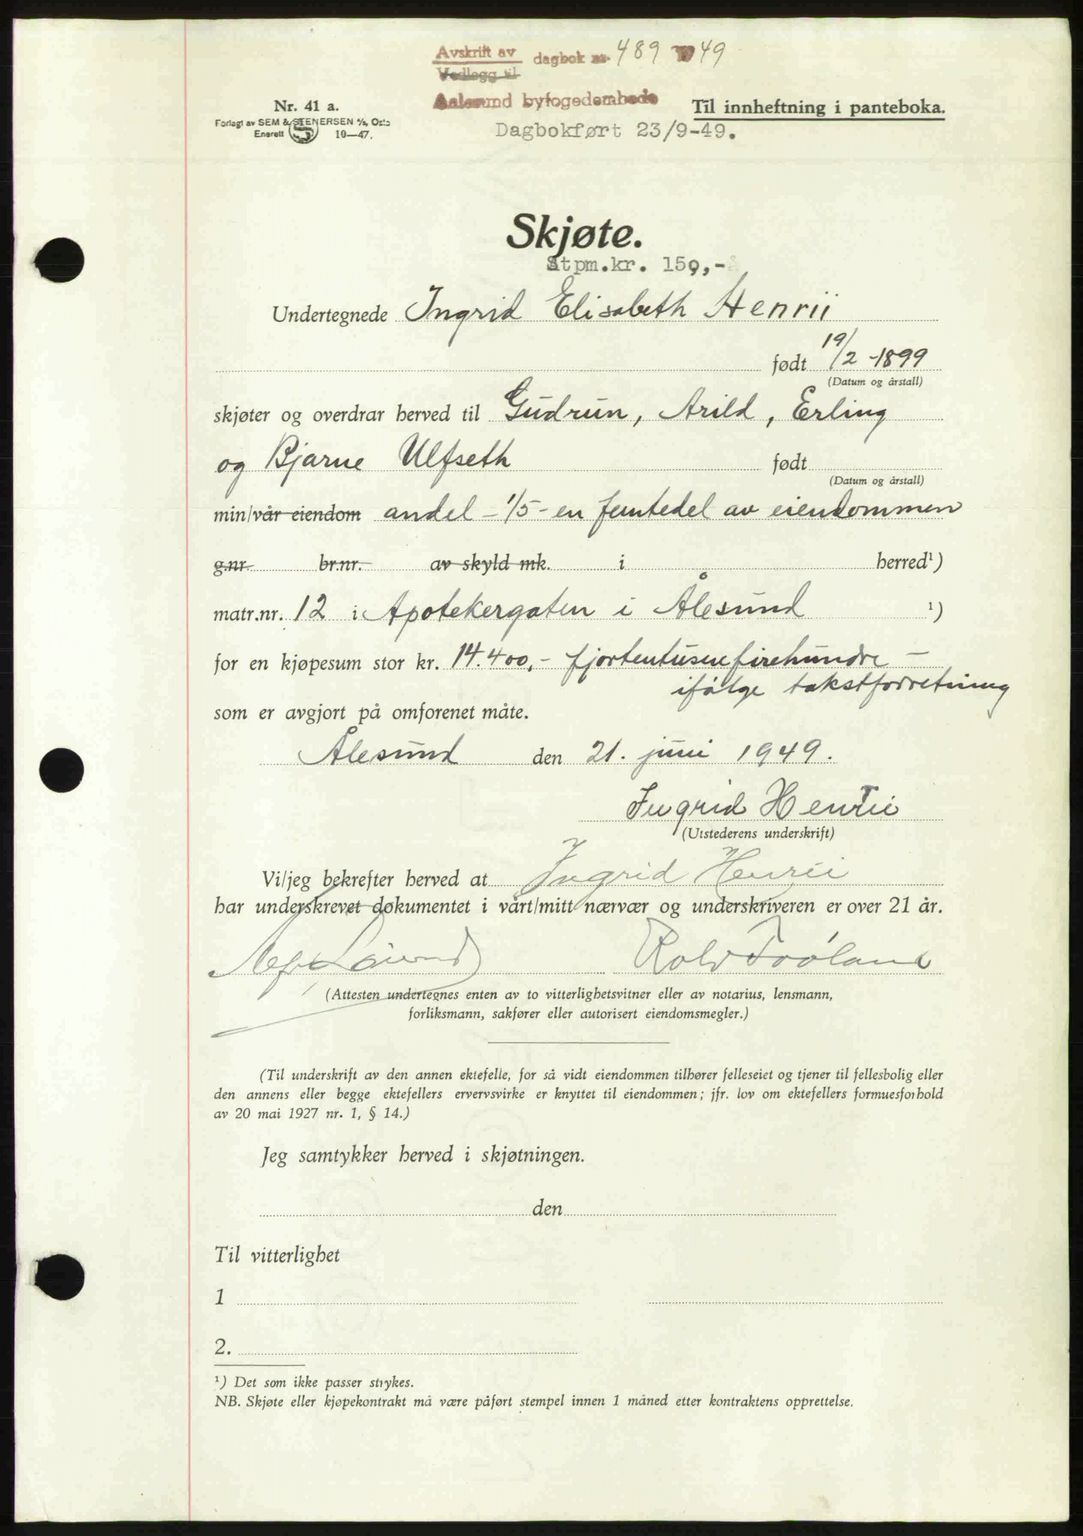 Avskrift av dagbok nr. 489 1949
Vedlegg til
Aalesund byfogedembede
Nr. 41 a.
Til innheftning i panteboka.
Forlagt av SEM & STENERSEN A/S, Oslo
Enerett S 10—47.
Dagbokført 23/9-49.
Skjøte.
Stpm.kr. 150,-
Undertegnede Ingrid Elisabeth Henrii
født 19/2-1899
(Datum og årstall)
skjøter og overdrar herved til Gudrun, Arild, Erling
og Bjarne Ulfseth født
(Datum og årstall)
min/vår eiendom andel - 1/5 - en femtedel av eiendommen
g.nr. br.nr. av skyld mk. i herred¹)
matr.nr. 12 i Apotekergaten i Ålesund ¹)
for en kjøpesum stor kr. 14.400,- fjortentusenfirehundre —
ifølge takstforretning
som er avgjort på omforenet måte.
Ålesund den 21. juni 1949.
Ingrid Henrii
(Utstederens underskrift)
Vi/jeg bekrefter herved at Ingrid Henrii
har underskrevet dokumentet i vårt/mitt nærvær og underskriveren er over 21 år.
Rolv
(Attesten undertegnes enten av to vitterlighetsvitner eller av notarius, lensmann,
forliksmann, sakfører eller autorisert eiendomsmegler.)
(Til underskrift av den annen ektefelle, for så vidt eiendommen tilhører felleseiet og tjener til fellesbolig eller
den annens eller begge ektefellers ervervsvirke er knyttet til eiendommen; jfr. lov om ektefellers formuesforhold
av 20 mai 1927 nr. 1, § 14.)
Jeg samtykker herved i skjøtningen.
den
Til vitterlighet
1
2.
¹) Det som ikke passer strykes.
NB. Skjøte eller kjøpekontrakt må være påført stempel innen 1 måned etter kontraktens opprettelse.